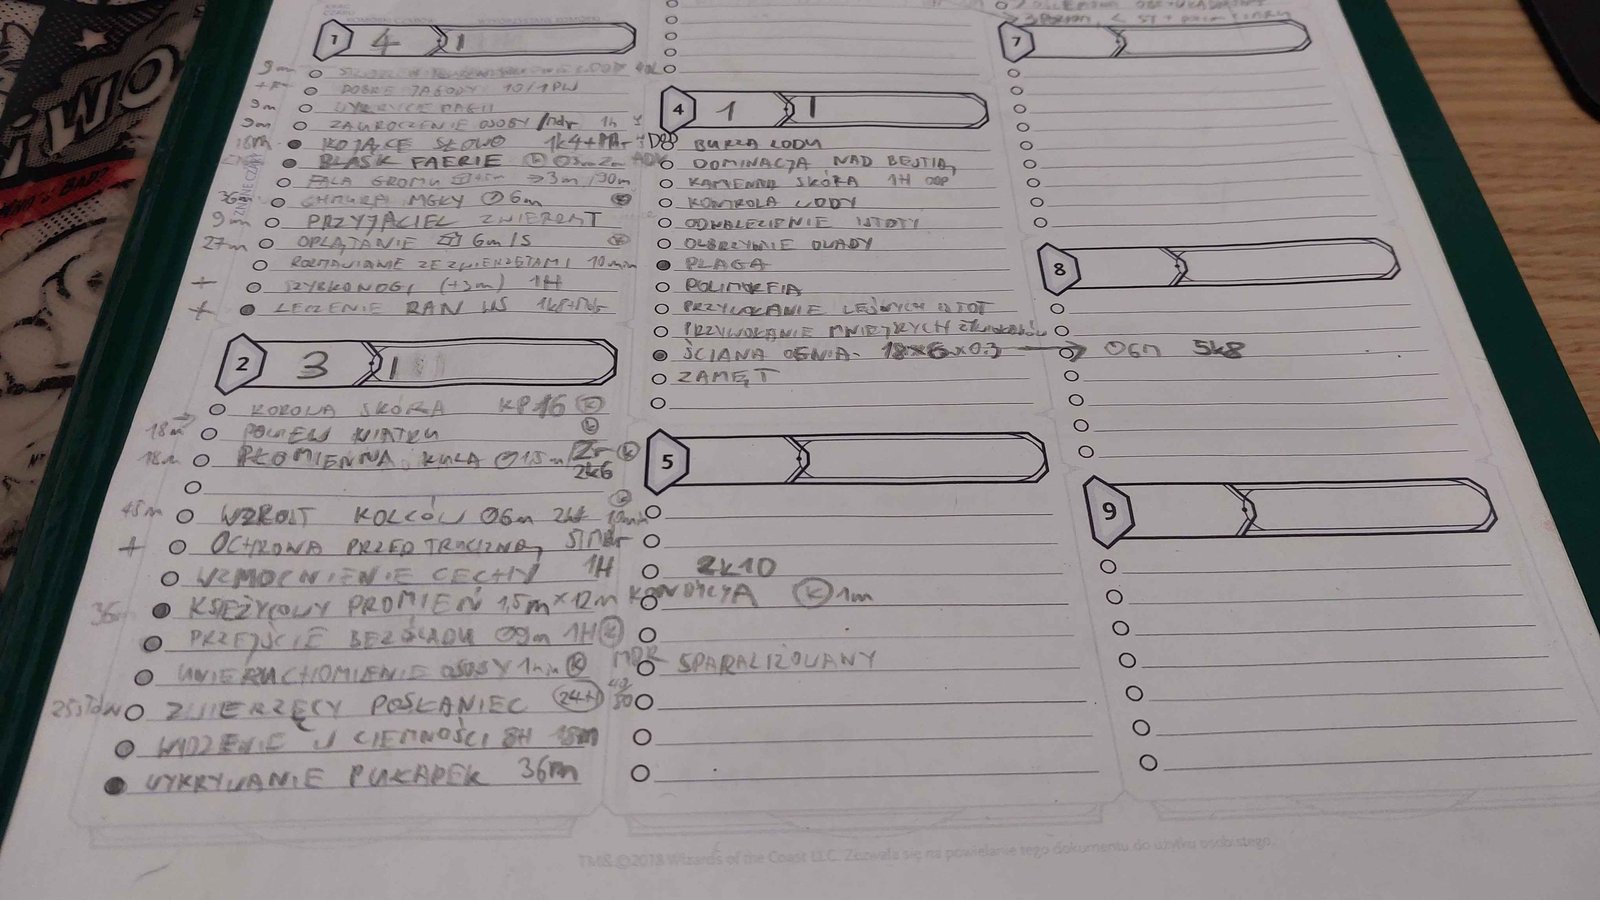 1 4 1
9m DOBRE JAGODY 10/1PW
9m WYKRYCIE MAGII
9m ZAUROCZENIE OSOBY /Mdr 1h
18m KOJĄCE SŁOWO 1k4+MA
BLASK FAERIE
FALA GROMU 3m /90m
36m CHMURA MGŁY 6m
9m PRZYJACIEL ZWIERZĄT
27m OPLĄTANIE 6m/S
ROZMAWIANIE ZE ZWIERZĘTAMI 10min
+ SZYBKONOGI (+3m) 1H
+ LECZENIE RAN
2 3 1
KOROWA SKÓRA KP16 K
18m POWIEW WIATRU K
18m PŁOMIENNA KULA 1,5m Zr K
2k6
45m WZROST KOLCÓW 6m 2k4 10min
+ OCHRONA PRZED TRUCIZNĄ
WZMOCNIENIE CECHY 1H
2k10
36m KSIĘŻYCOWY PROMIEŃ 1,5m x 12m KONDYCJA K 1m
PRZEJŚCIE BEZ ŚLADU 9m 1H K
UNIERUCHOMIENIE OSOBY 1min K MDR SPARALIŻOWANY
ZWIERZĘCY POSŁANIEC 24H 40/80
WIDZENIE W CIEMNOŚCI 8H 18m
WYKRYWANIE PUŁAPEK 36m
4 1 1
BURZA LODU
DOMINACJA NAD BESTIĄ
KAMIENNA SKÓRA 1H ODP
KONTROLA WODY
ODNALEZIENIE ISTOTY
OLBRZYMIE OWADY
PLAGA
POLIMORFIA
PRZYWOŁANIE LEŚNYCH ISTOT
PRZYWOŁANIE MNIEJSZYCH ŻYWIOŁAKÓW
ŚCIANA OGNIA 18x6x0.3 → 5k8
ZAMĘT
5
7
8
9
TM&©2018 Wizards of the Coast LLC. Zezwala się na powielanie tego dokumentu do użytku osobistego.